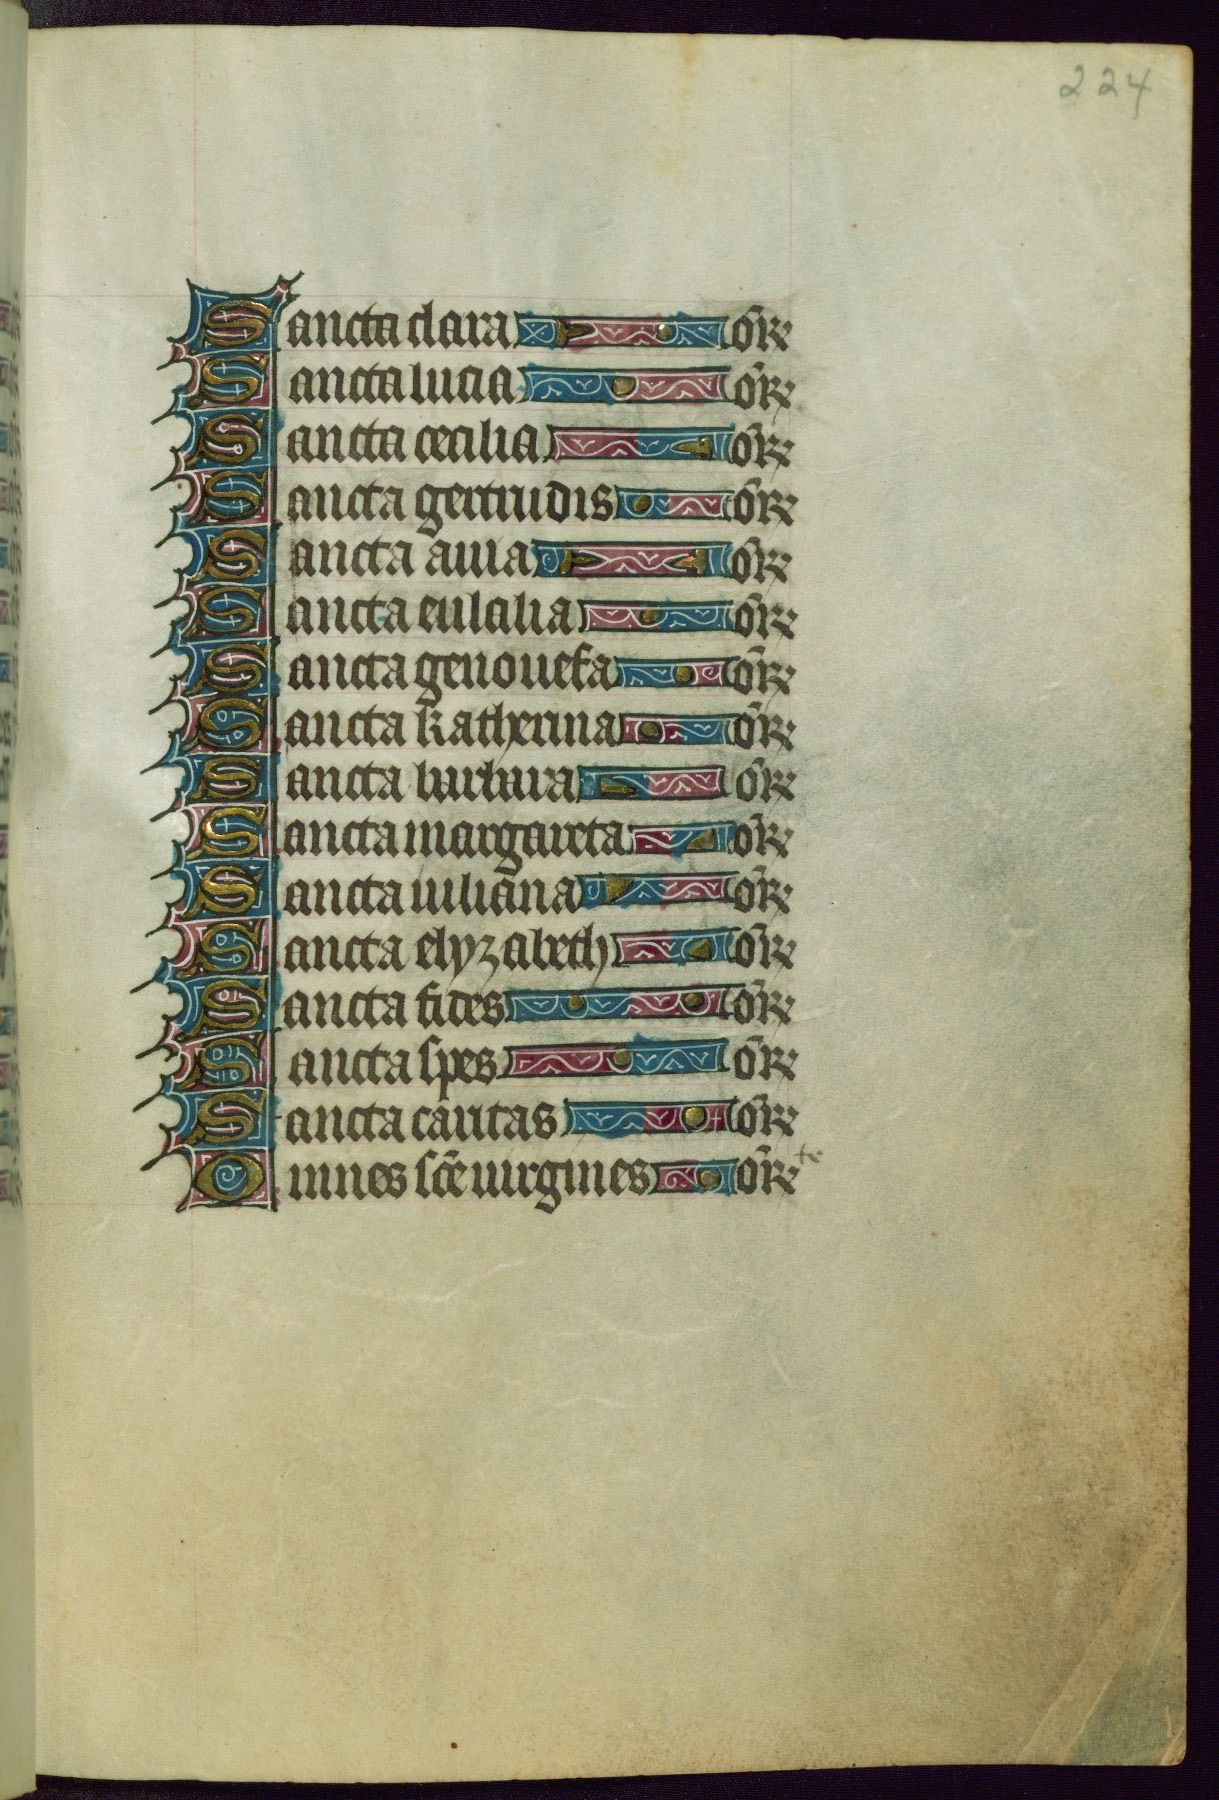 224
Sancta clara or̃
Sancta lucia or̃
Sancta cecilia or̃
Sancta gertrudis or̃
Sancta auia or̃
Sancta eulalia or̃
Sancta genouefa or̃
Sancta katherina or̃
Sancta barbara or̃
Sancta margareta or̃
Sancta iuliana or̃
Sancta elyzabeth or̃
Sancta fides or̃
Sancta spes or̃
Sancta caritas or̃
Omnes sc̃e uirgines or̃ te